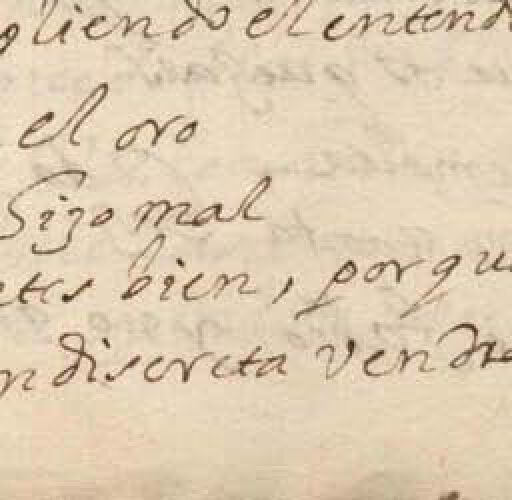 gliendo el entend
el oro
hizo mal
etes bien, porqu
n discreta vendra